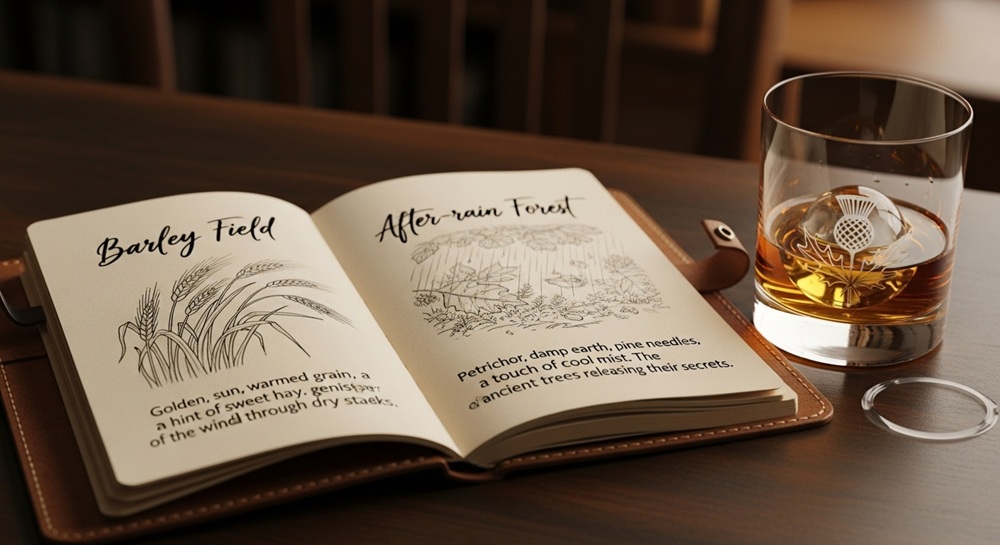 Barley Field
Golden, sun, warmed grain, a
a hint of sweet hay.
of the wind through dry stacks.
After-rain Forest
Petrichor, damp earth, pine needles,
a touch of cool mist. The
ancient trees releasing their secrets.